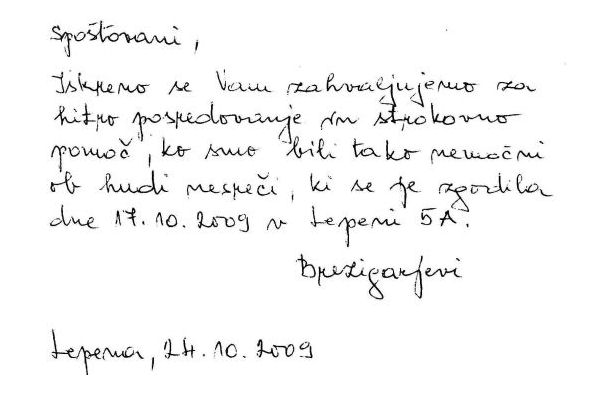 Spoštovani,
Iskreno se Vam zahvaljujemo za
hitro posredovanje in strokovno
pomoč, ko smo bili tako nemočni
ob hudi nesreči, ki se je zgodila
dne 17.10.2009 v Lepeni 5A.
Brezigarjevi
Lepena, 24.10.2009